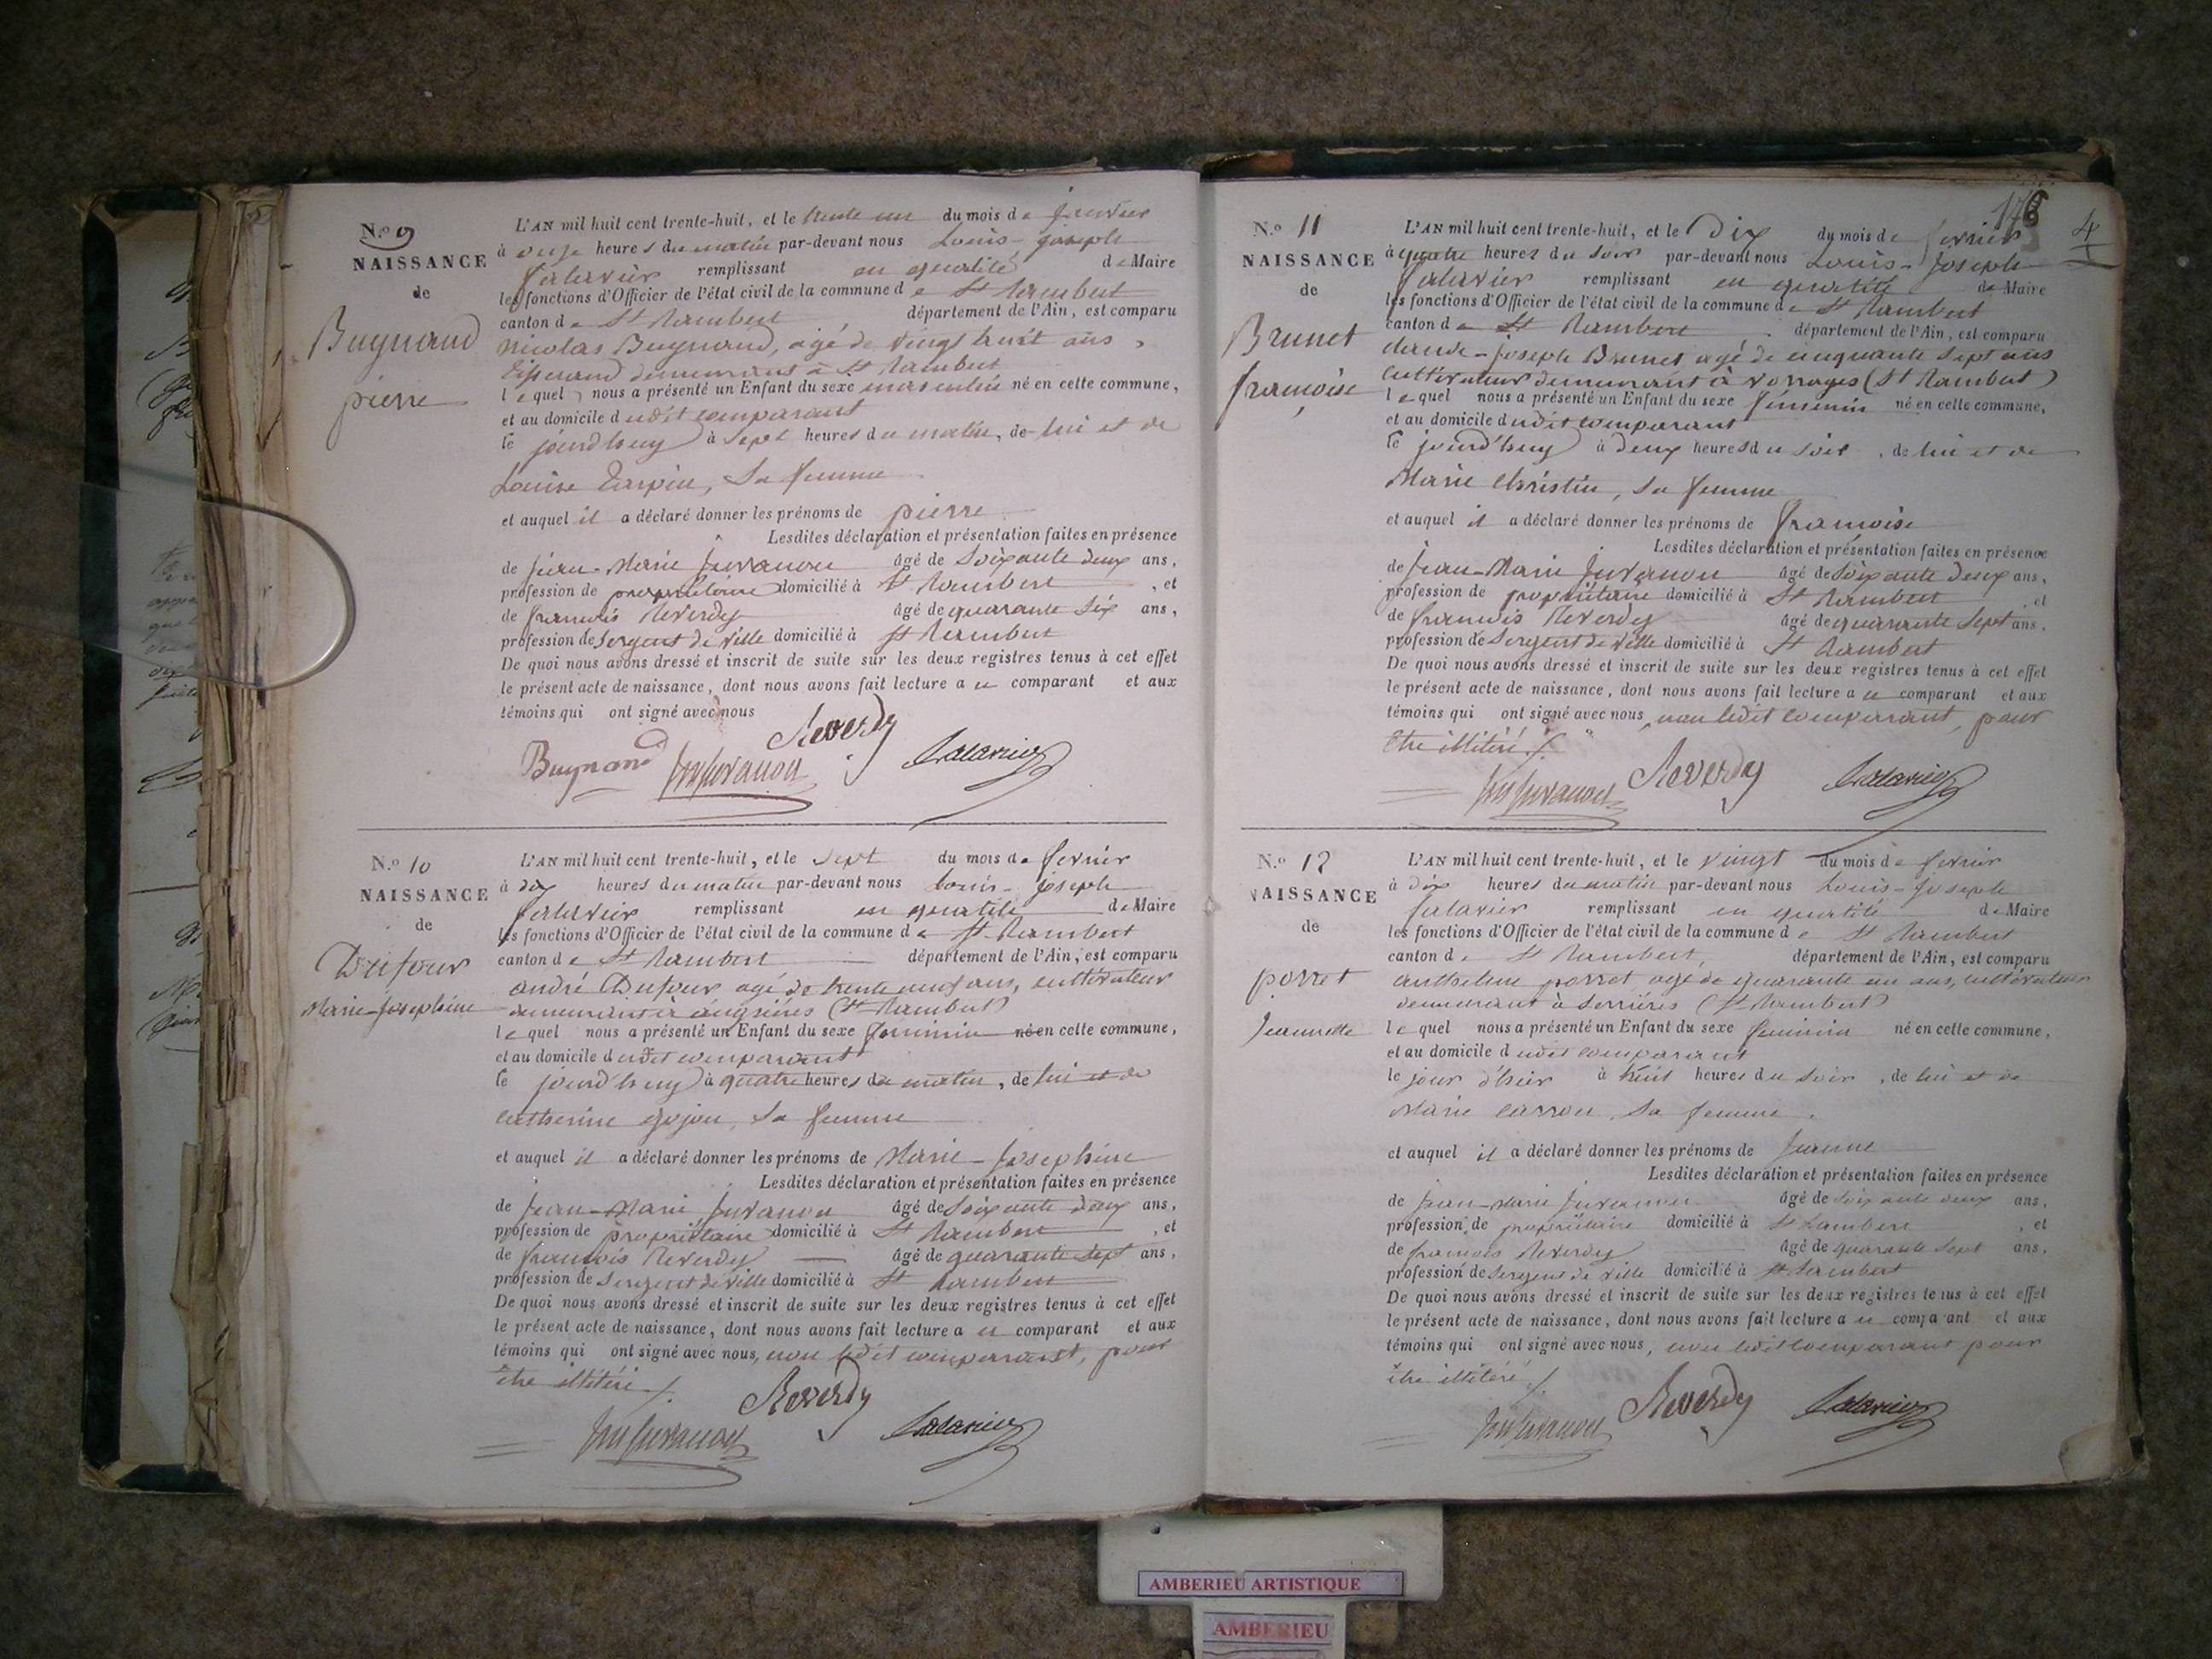 N.o 9
NAISSANCE
de
Bugnand
pierre
L'AN mil huit cent trente-huit, et le trente un du mois de janvier
à onze heures du matin par-devant nous Louis-joseph
Salavier remplissant en qualité de Maire
les fonctions d'Officier de l'état civil de la commune de St Rambert
canton de St Rambert département de l'Ain, est comparu
nicolas Bugnand, agé de vingt huit ans,
tisserand demeurant à St Rambert
lequel nous a présenté un Enfant du sexe masculin né en cette commune,
et au domicile dudit comparant
le jourd'huy à sept heures du matin, de lui et de
Louise Tarpin, sa femme
et auquel il a déclaré donner les prénoms de pierre
Lesdites déclaration et présentation faites en présence
de jean-Marie Juvanon âgé de soixante deux ans,
profession de propriétaire domicilié à St Rambert, et
de françois Reverdy âgé de quarante six ans,
profession de Sergent de ville domicilié à St Rambert
De quoi nous avons dressé et inscrit de suite sur les deux registres tenus à cet effet
le présent acte de naissance, dont nous avons fait lecture a ce comparant et aux
témoins qui ont signé avec nous
Reverdy
Bugnand Juvanon Salavier
N.o 10
NAISSANCE
de
Dufour
Marie-Josephine
L'AN mil huit cent trente-huit, et le sept du mois de fevrier
à dix heures du matin par-devant nous Louis-joseph
Salavier remplissant en qualité de Maire
les fonctions d'Officier de l'état civil de la commune de St Rambert
canton de St Rambert département de l'Ain, est comparu
andré Dufour agé de trente neuf ans, cultivateur
demeurant à angrières (St Rambert)
lequel nous a présenté un Enfant du sexe feminin né en cette commune,
et au domicile dudit comparant
le jourd'huy à quatre heures du matin, de lui et de
catherine gojon, sa femme
et auquel il a déclaré donner les prénoms de Marie-Josephine
Lesdites déclaration et présentation faites en présence
de Jean-Marie Juvanon âgé de soixante deux ans,
profession de propriétaire domicilié à St Rambert, et
de françois Reverdy âgé de quarante sept ans,
profession de Sergent de ville domicilié à St Rambert
De quoi nous avons dressé et inscrit de suite sur les deux registres tenus à cet effet
le présent acte de naissance, dont nous avons fait lecture a ce comparant et aux
témoins qui ont signé avec nous, non ledit comparant, pour
être illitéré ./.
Reverdy
Juvanon Salavier
4
N.o 11
NAISSANCE
de
Brunet
françoise
L'AN mil huit cent trente-huit, et le Dix du mois de fevrier
à quatre heures du soir par-devant nous Louis-Joseph
Salavier remplissant en qualité de Maire
les fonctions d'Officier de l'état civil de la commune de St Rambert
canton de St Rambert département de l'Ain, est comparu
claude-joseph Brunet agé de cinquante sept ans
cultivateur demeurant à vorages (St Rambert)
lequel nous a présenté un Enfant du sexe féminin né en cette commune,
et au domicile dudit comparant
le jourd'huy à deux heures du soir, de lui et de
Marie Christin, sa femme
et auquel il a déclaré donner les prénoms de françoise
Lesdites déclaration et présentation faites en présence
de jean-Marie Juvanon âgé de soixante deux ans,
profession de propriétaire domicilié à St Rambert, et
de françois Reverdy âgé de quarante sept ans,
profession de Sergent de ville domicilié à St Rambert
De quoi nous avons dressé et inscrit de suite sur les deux registres tenus à cet effet
le présent acte de naissance, dont nous avons fait lecture a ce comparant et aux
témoins qui ont signé avec nous, non ledit comparant, pour
être illitéré ./.
Juvanon Reverdy Salavier
N.o 12
NAISSANCE
de
porret
Jeannette
L'AN mil huit cent trente-huit, et le vingt du mois de fevrier
à dix heures du matin par-devant nous Louis-Joseph
Salavier remplissant en qualité de Maire
les fonctions d'Officier de l'état civil de la commune de St Rambert
canton de St Rambert, département de l'Ain, est comparu
anthelme porret agé de quarante un ans, cultivateur
demeurant à serrières (St Rambert)
lequel nous a présenté un Enfant du sexe feminin né en cette commune,
et au domicile dudit comparant
le jour d'hier à huit heures du soir, de lui et de
Marie carron, sa femme.
et auquel il a déclaré donner les prénoms de Jeanne
Lesdites déclaration et présentation faites en présence
de jean-Marie Juvanon âgé de soixante deux ans,
profession de propriétaire domicilié à St Rambert, et
de françois Reverdy âgé de quarante sept ans,
profession de Sergent de ville domicilié à St Rambert
De quoi nous avons dressé et inscrit de suite sur les deux registres tenus à cet effet
le présent acte de naissance, dont nous avons fait lecture a ce comparant et aux
témoins qui ont signé avec nous, non ledit comparant pour
être illitéré ./.
Juvanon Reverdy Salavier
AMBERIEU ARTISTIQUE
AMBERIEU